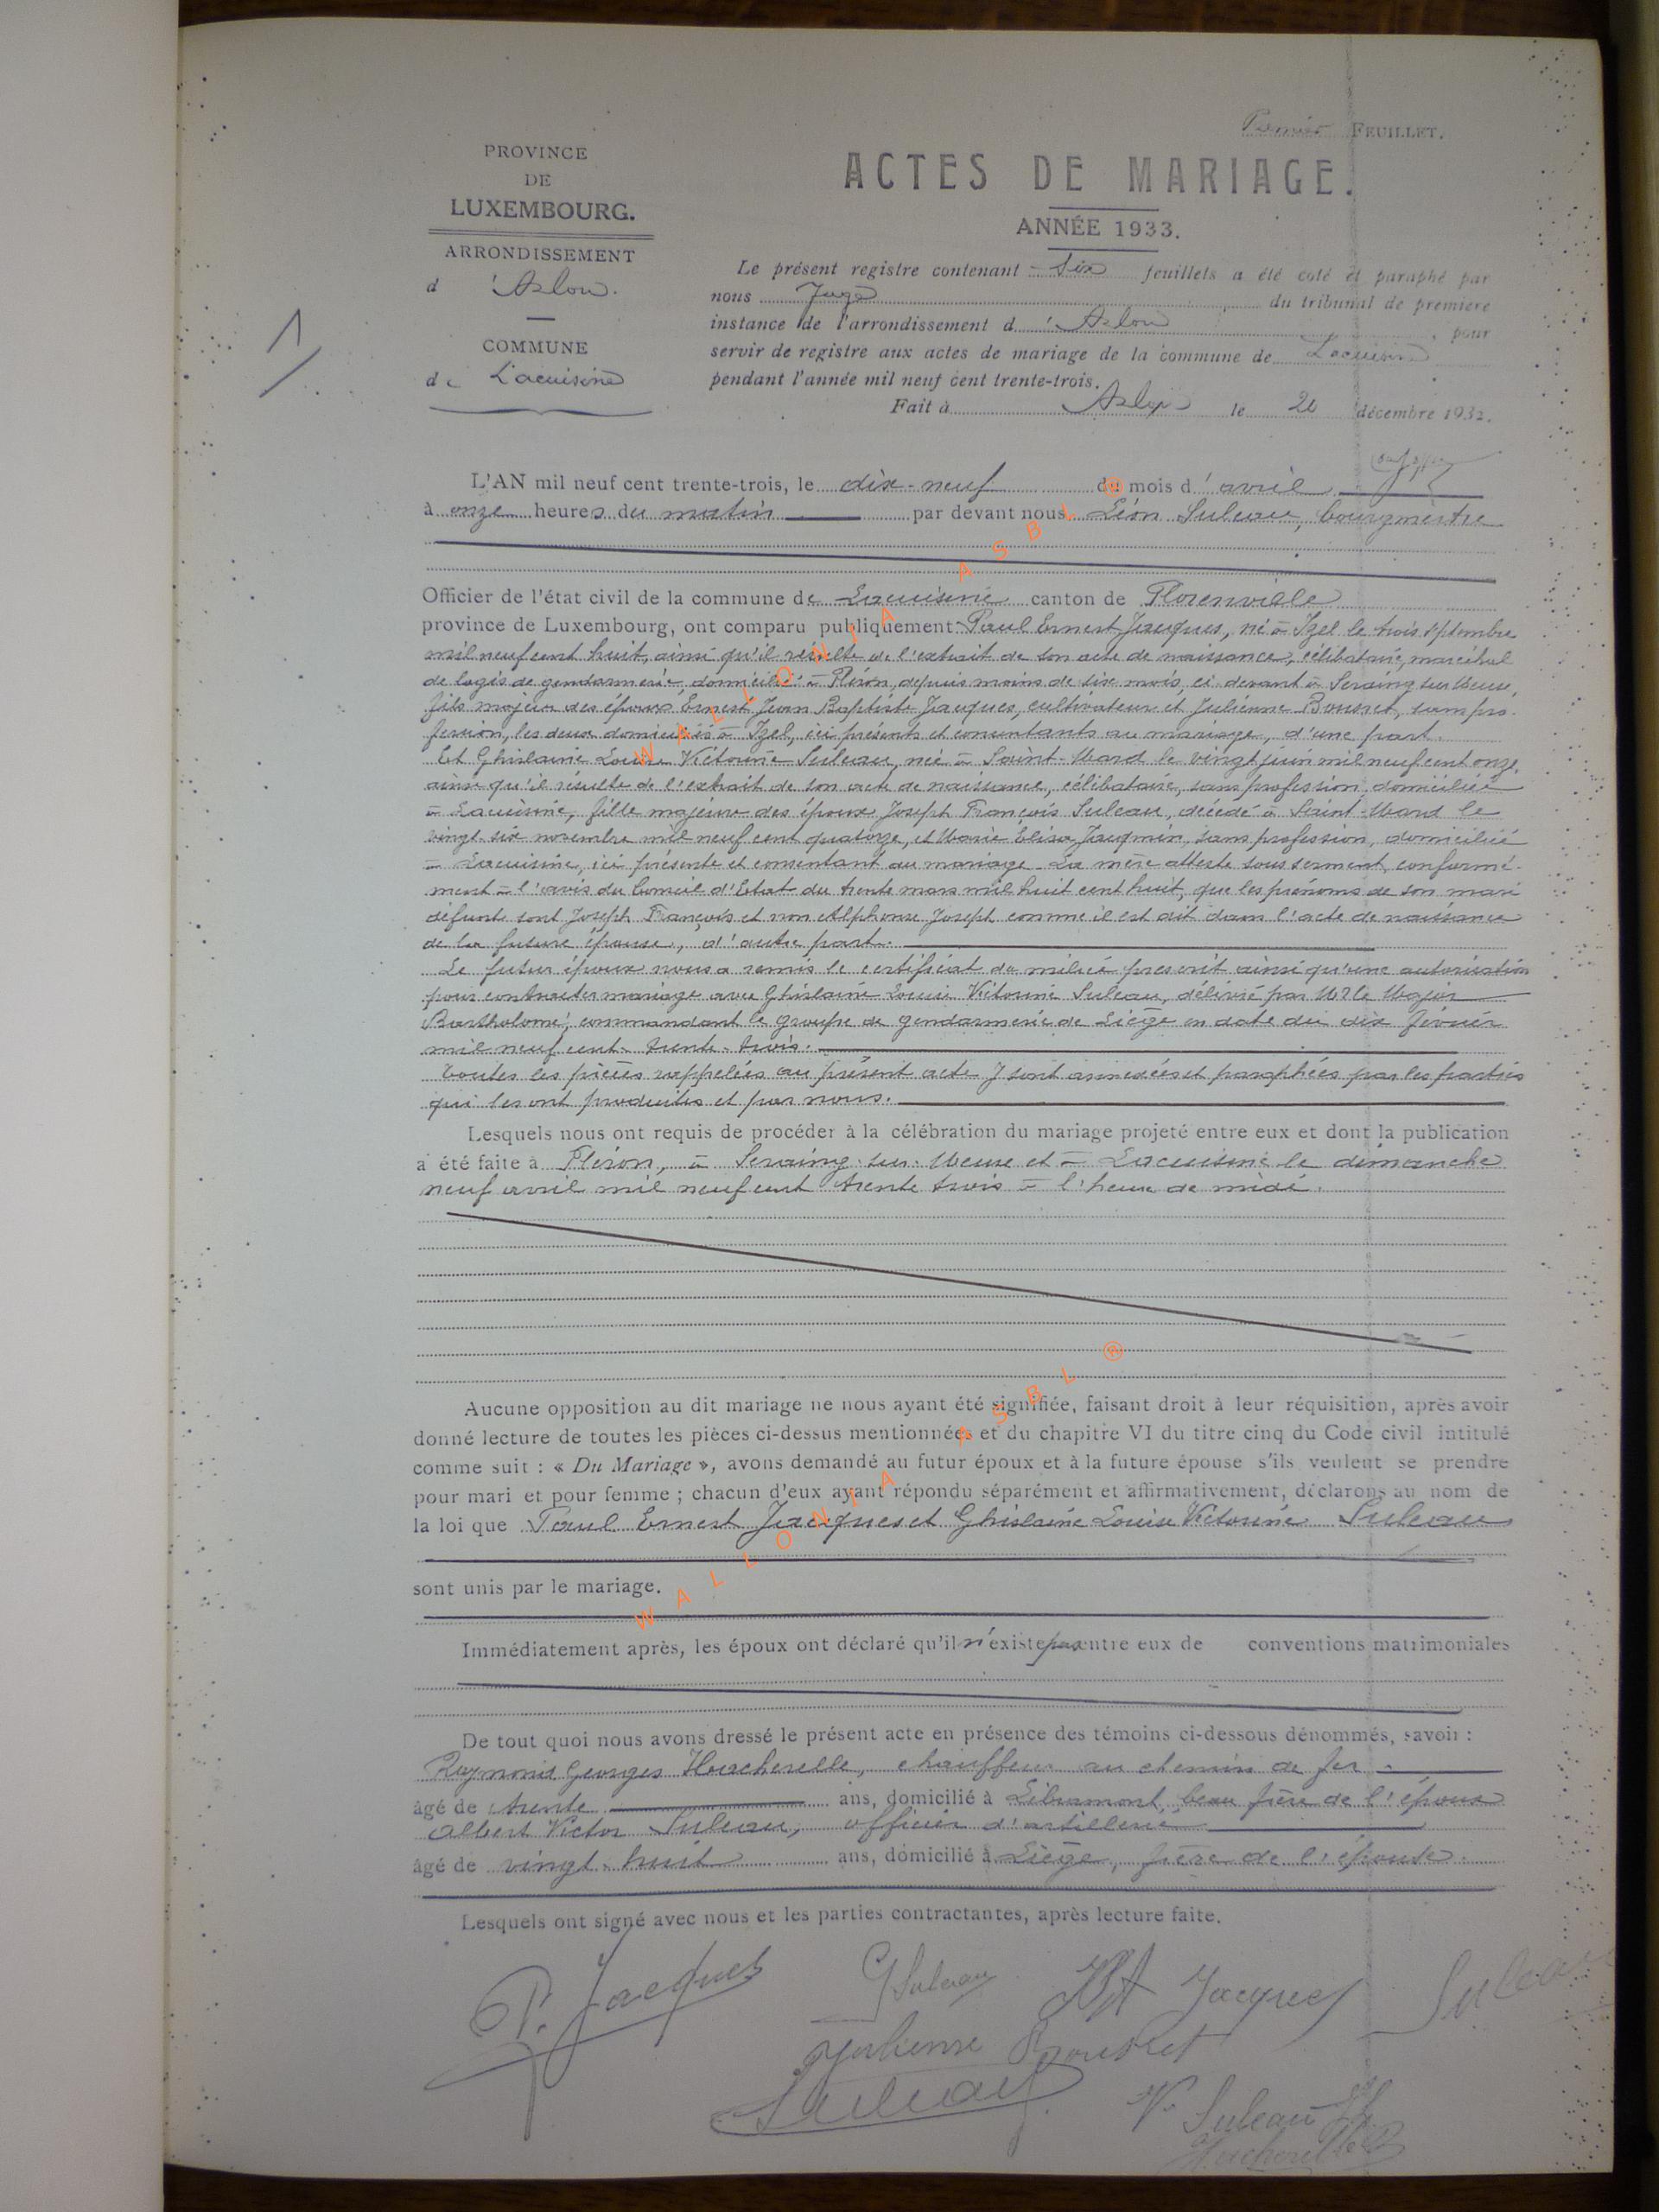 Premier FEUILLET.
PROVINCE
DE
LUXEMBOURG.
ARRONDISSEMENT
d'Arlon.
COMMUNE
de Lacuisine
1/
ACTES DE MARIAGE.
ANNÉE 1933.
Le présent registre contenant six feuillets a été coté et paraphé par
nous Juge du tribunal de première
instance de l'arrondissement d'Arlon, pour
servir de registre aux actes de mariage de la commune de Lacuisine
pendant l'année mil neuf cent trente-trois.
Fait à Arlon le 20 décembre 1932.
L'AN mil neuf cent trente-trois, le dix-neuf du mois d'avril
à onze heures du matin par devant nous Léon Suleau, bourgmestre
Officier de l'état civil de la commune de Lacuisine canton de Florenville
province de Luxembourg, ont comparu publiquement Paul Ernest Jacques, né à Izel le trois septembre
mil neuf cent huit, ainsi qu'il résulte de l'extrait de son acte de naissance, célibataire, maréchal
de logis de gendarmerie, domicilié à Fléron, depuis moins de six mois, ci-devant à Seraing sur Meuse,
fils majeur des époux Ernest Jean Baptiste Jacques, cultivateur et Julienne Bousret, sans pro-
fession, les deux domiciliés à Izel, ici présents et consentants au mariage, d'une part.
Et Ghislaine Louise Victorine Suleau, née à Saint-Mard le vingt juin mil neuf cent onze,
ainsi qu'il résulte de l'extrait de son acte de naissance, célibataire, sans profession, domiciliée
à Lacuisine, fille majeure des époux Joseph François Suleau, décédé à Saint-Mard le
vingt-six novembre mil neuf cent quatorze, et Marie Élisa Jacqmin, sans profession, domiciliée
à Lacuisine, ici présente et consentant au mariage. La mère atteste sous serment, conformé-
ment à l'avis du Conseil d'Etat du trente mars mil huit cent huit, que les prénoms de son mari
défunt sont Joseph François et non Alphonse Joseph comme il est dit dans l'acte de naissance
de la future épouse, d'autre part.
Le futur époux nous a remis le certificat de milice prescrit ainsi qu'une autorisation
pour contracter mariage avec Ghislaine Louise Victorine Suleau, délivré par Mr le Major
Bartholomé, commandant le groupe de gendarmerie de Liège en date du dix février
mil neuf cent trente-trois.
Toutes les pièces rappelées au présent acte y sont annexées et paraphées par les parties
qui les ont produites et par nous.
Lesquels nous ont requis de procéder à la célébration du mariage projeté entre eux et dont la publication
a été faite à Fléron, à Seraing-sur-Meuse et à Lacuisine le dimanche
neuf avril mil neuf cent trente trois à l'heure de midi.
Aucune opposition au dit mariage ne nous ayant été signifiée, faisant droit à leur réquisition, après avoir
donné lecture de toutes les pièces ci-dessus mentionnées et du chapitre VI du titre cinq du Code civil intitulé
comme suit : « Du Mariage », avons demandé au futur époux et à la future épouse s'ils veulent se prendre
pour mari et pour femme ; chacun d'eux ayant répondu séparément et affirmativement, déclarons au nom de
la loi que Paul Ernest Jacques et Ghislaine Louise Victorine Suleau
sont unis par le mariage.
Immédiatement après, les époux ont déclaré qu'il n'existe pas entre eux de conventions matrimoniales
De tout quoi nous avons dressé le présent acte en présence des témoins ci-dessous dénommés, savoir :
Raymond Georges Hercherelle, chauffeur au chemin de fer
âgé de trente ans, domicilié à Libramont, beau frère de l'époux
Albert Victor Suleau, officier d'artillerie
âgé de vingt-huit ans, domicilié à Liège, frère de l'épouse.
Lesquels ont signé avec nous et les parties contractantes, après lecture faite.
P. Jacques
G Suleau
Jacques
Suleau
Julienne Bousret
Suleau
Ve Suleau
WALLONIA ASBL ®
WALLONIA ASBL ®